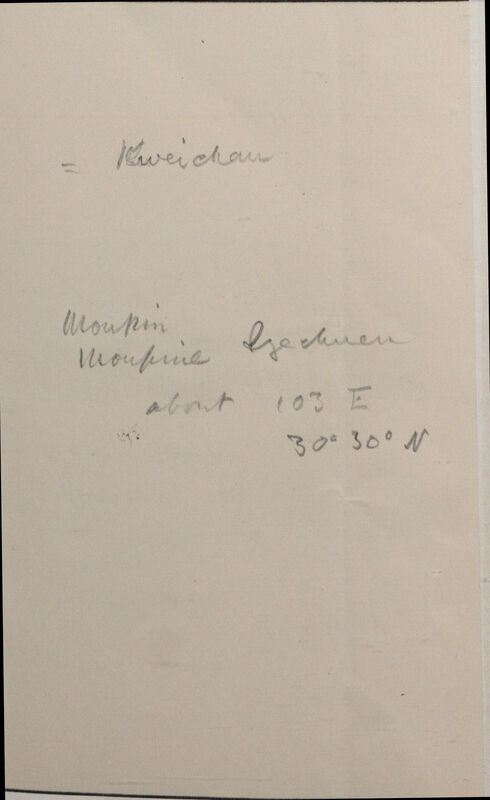 = Kweichau
Moupin
Moupine Szechuen
about 103 E
30° 30° N